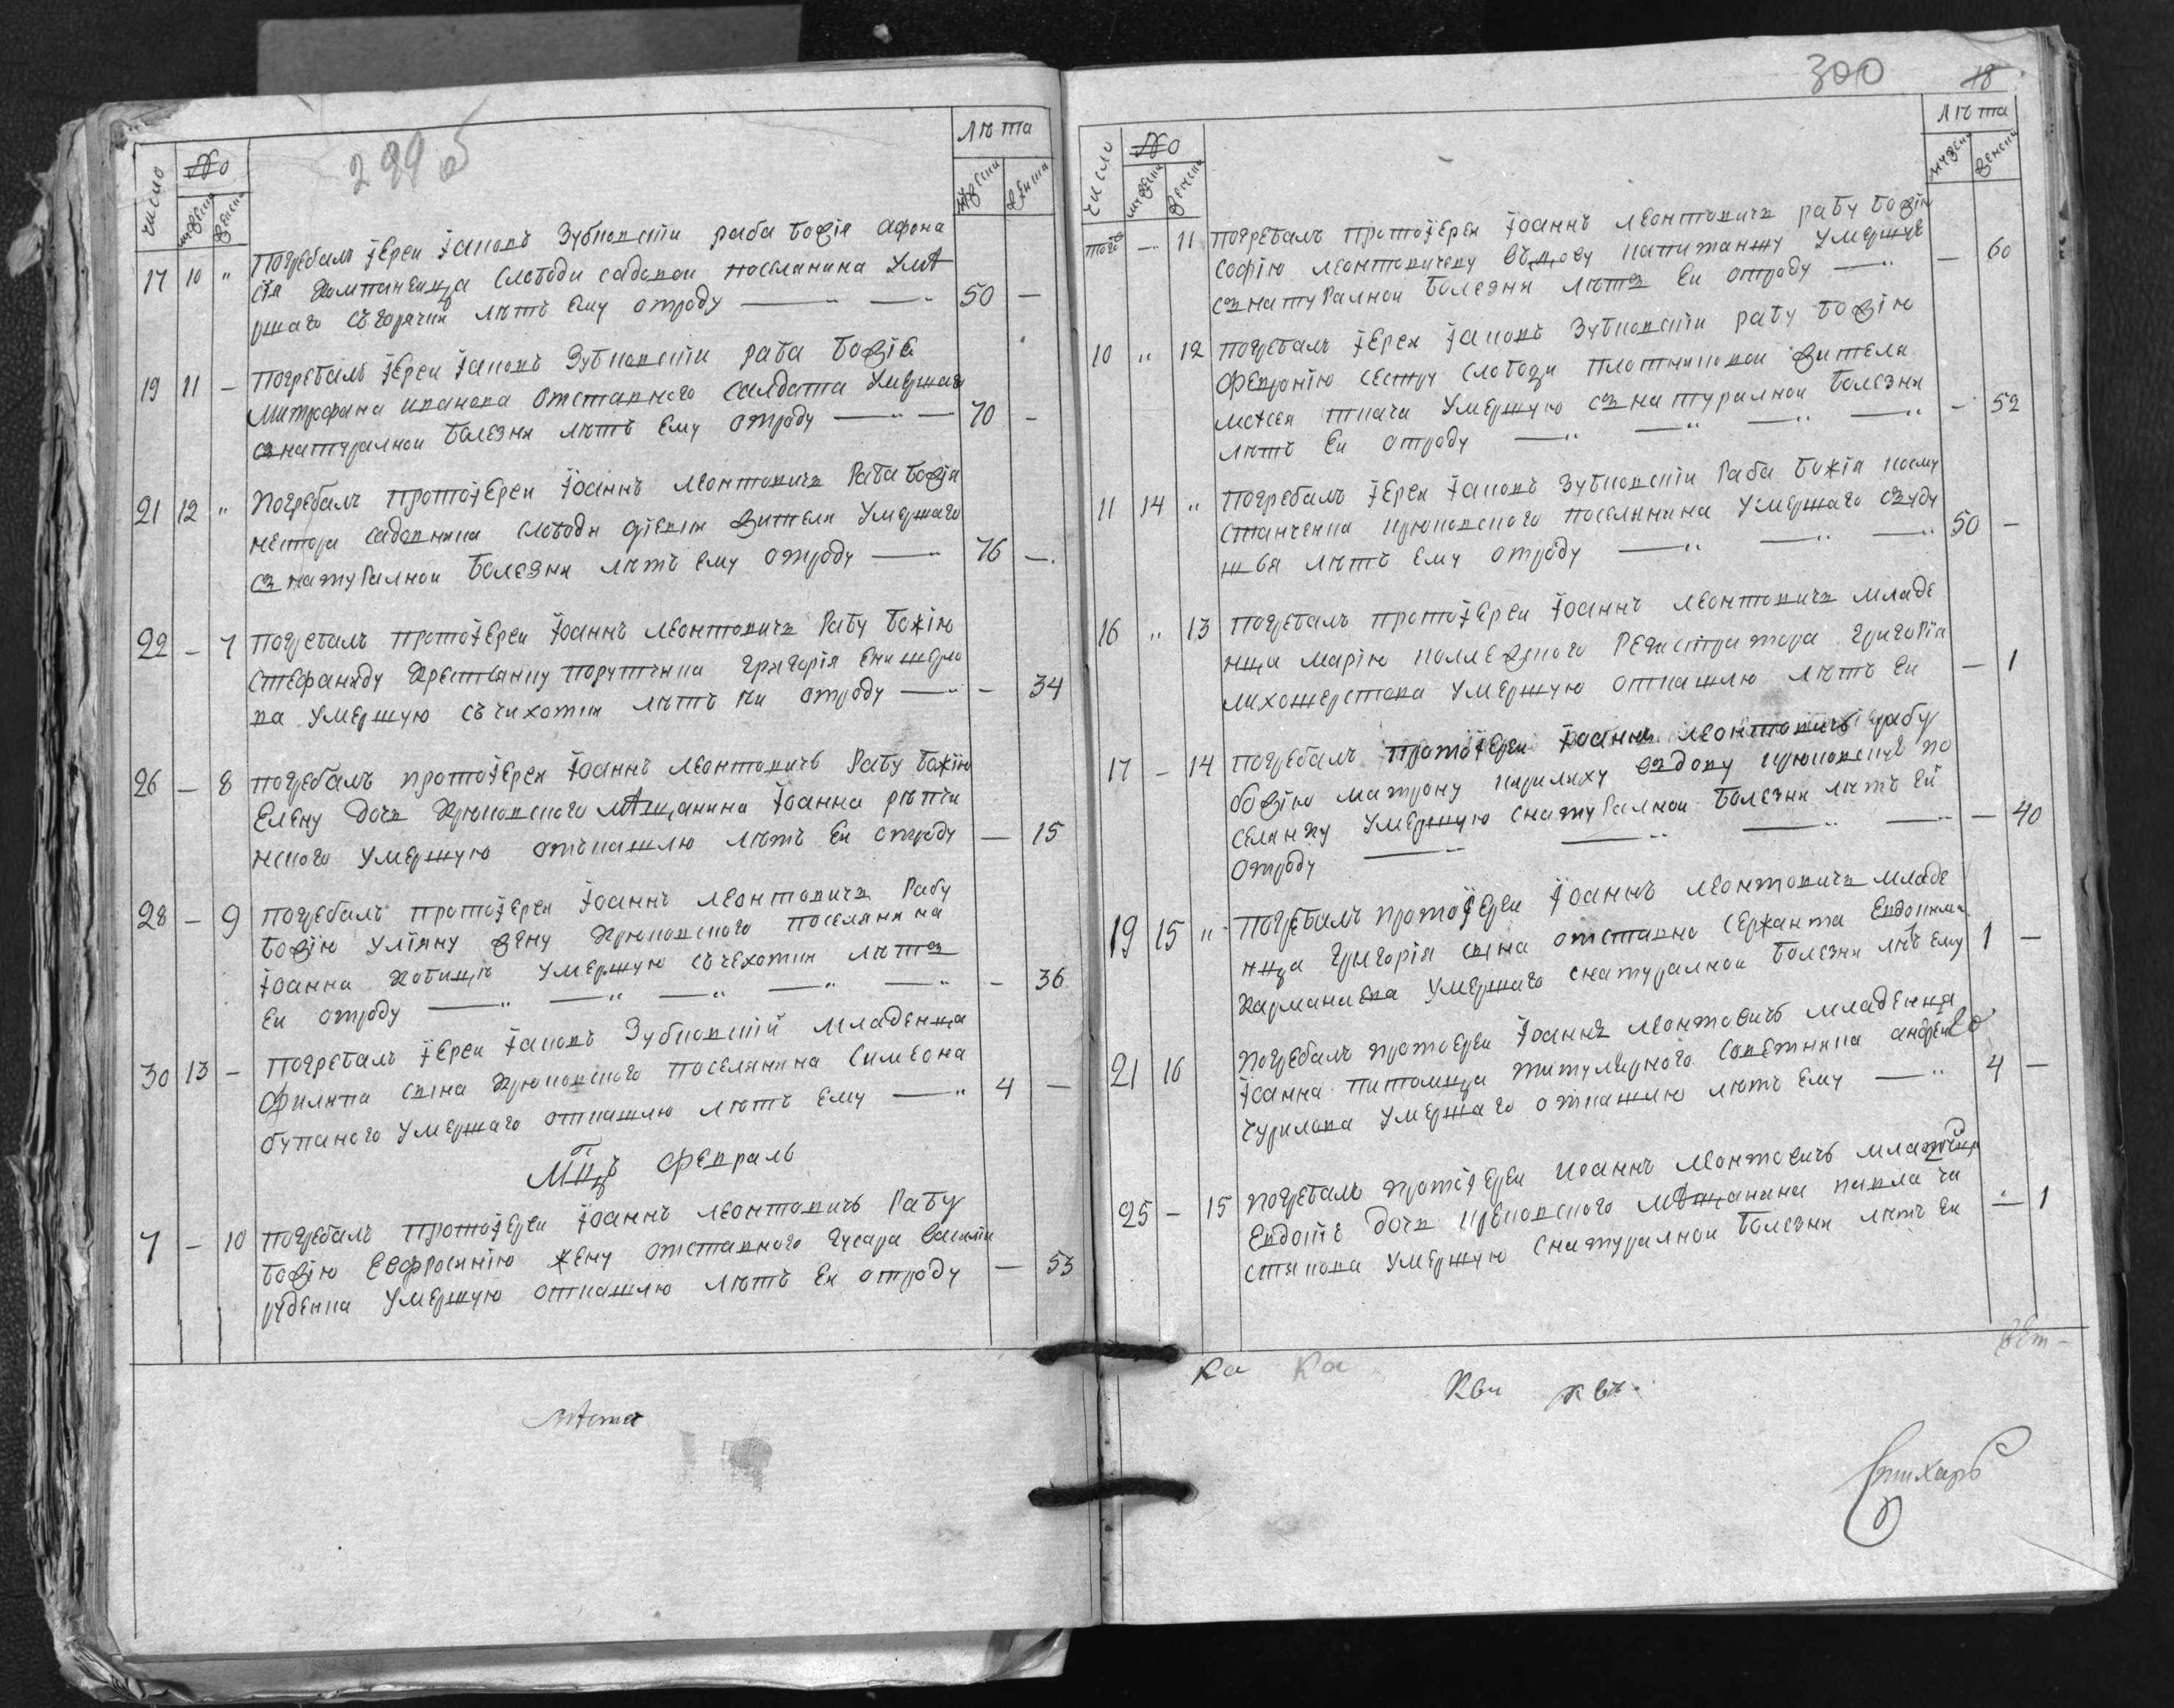 299 об
число
№
мужески
женски
Лѣта
мужески
женски
17 10 " Погребалъ Іерей Іаковъ Зубковскій раба божія Афона
сія Компанейца слободи садовой поселанина Умѣ
ршаго съгорячки лѣтъ ему отроду 50 —
19 11 — Погребалъ Іерей Іаковъ Зубковскій раба божія
Митрофана иванова отставного салдата Умершаго
сънатуралной болезни лѣтъ ему отроду 70 —
21 12 " Погребалъ протоіерей Іоаннъ Леонтовичъ Раба божія
нестора садовника слободи жителя Умершаго
сънатуралной болезни лѣтъ ему отроду 76 —
22 — 7 Погребалъ протоіерей Іоаннъ Леонтовичъ Рабу божію
Стефаниду Крестьянку порутчика Григорія
ва Умершую съчихотки лѣтъ еи отроду — 34
26 — 8 погребалъ протоіерей Іоаннъ Леонтовичъ Рабу божію
Елену дочь Крюковского мѣщанина Іоанна рѣпчи
нского Умершую откашлю лѣтъ Еи отроду — 15
28 — 9 погребалъ протоіерей Іоаннъ Леонтовичъ Рабу
божію Уліяну жену Крюковского поселянина
Іоанна Умершую съчехотки лѣтъ
Еи отроду — 36
30 13 — Погребалъ Іерей Іаковъ Зубковскій Младенца
Филипа сына Крюковского поселянина Симеона
Умершаго откашлю лѣтъ Ему 4 —
Мцъ Февраль
7 — 10 погребалъ протоіерей Іоаннъ Леонтовичъ Рабу
божію Евфросинію жену отставного гусара Василія
руденка Умершую откашлю лѣтъ Еи отроду — 53
Лѣта
300
18
число
№
мужески
женски
Лѣта
мужески
женски
того — 11 Погребалъ протоіерей Іоаннъ Леонтовичъ рабу божію
Софію Леонтовичеву въдову капитаншу Умершу
сънатуралной болезни лѣтъ Еи отроду — 60
10 " 12 Погребалъ Іерей Іаковъ Зубковскій рабу божію
Февронію сестру слободи плотниковой жителя
Моѵсея ткача Умершую сънатуралной болезни
лѣтъ Еи отроду — 52
11 14 " Погребалъ Іерей Іаковъ Зубковскій Раба божія
крюковского поселянина Умершаго съуду
шья лѣтъ Ему отроду 50 —
16 " 13 Погребалъ протоіерей Іоаннъ Леонтовичъ младе
нца Марію коллежного Регистратора Григорія
лихошерстова Умершую откашлю лѣтъ Еи — 1
17 — 14 Погребалъ протоіерей Іоаннъ Леонтовичъ рабу
божію матрону вдову крюковскую по
селянку Умершую снатуралной болезни лѣтъ Ей
отроду — 40
19 15 " Погребалъ протоіерей Іоаннъ Леонтовичъ младе
нца Григорія сына отставно сержанта Евдокима
Умершаго снатуралной болезни лѣ Ему 1 —
21 16 Погребалъ протоерей Іоаннъ Леонтовичъ младенца
Іоанна питомца титулярного Советника андрея
чурилова Умершаго откашлю лѣтъ Ему 4 —
25 — 15 погребалъ протоіерей Иоаннъ Леонтовичъ младенца
Евдокію дочь крюковского мѣщанина павла чи
стякова Умершую снатуралной болезни лѣтъ Еи — 1
Ка Ка
Квч
Стихарь